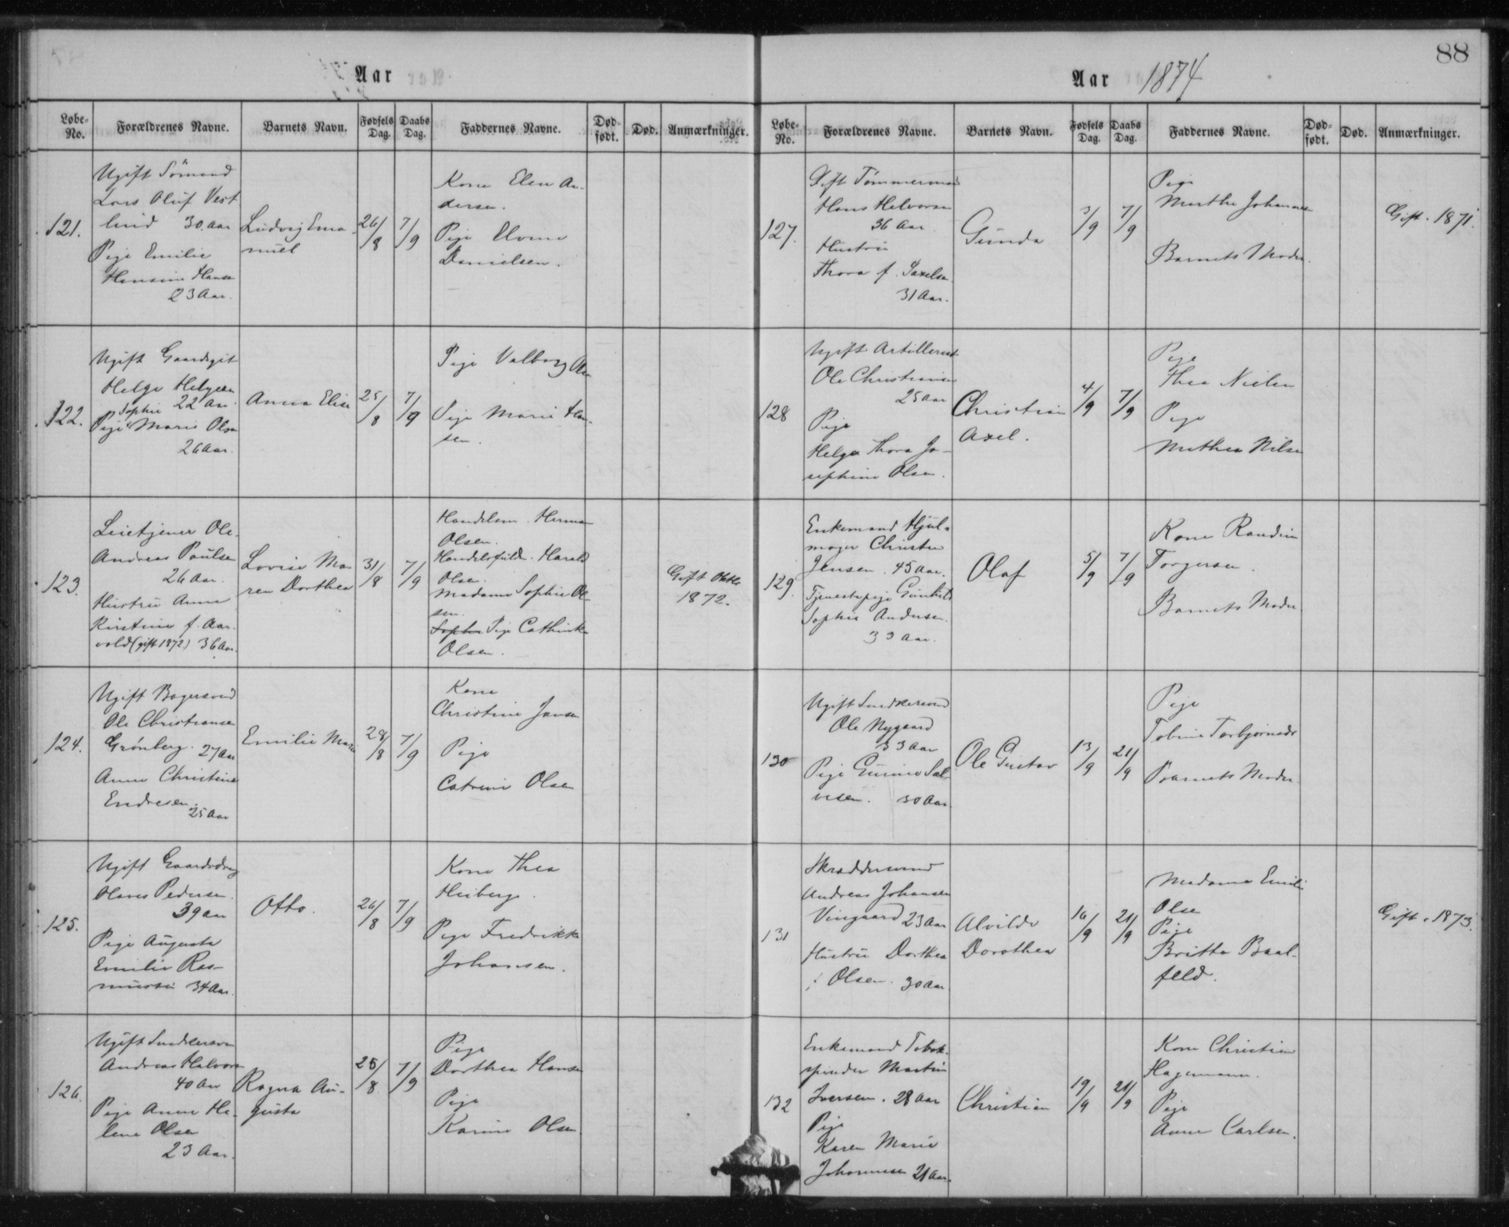 88
Aar
Aar 1874
Løbe-No. Forældrenes Navne. Barnets Navn. Fødsels Dag. Daabs Dag. Faddernes Navne. Død-født. Død. Anmærkninger.
121.
Ugift Sömand
Lars Oluf Vest
lund 30 Aar
Pige Emilie
Hansine Hansen
23 Aar.
Ludvig Ema-
nuel
26/8
7/9
Kone Elen An-
dersen.
Pige
Danielsen.
122.
Ugift Gaardsgut
Helge Helgesen
22 Aar.
Sophie
Pige Marie Olsen
26 Aar.
Anna Elise
25/8
7/9
Pige Valborg Olsen
Pige Marie Han-
sen.
123.
Leietjener Ole
Andreas Poulsen
26 Aar.
Hustru Anna
Kirstine f. Aar-
vold (gift 1872) 36 Aar.
Lovise Ma-
ren Dorthea
31/8
7/9
Handelsm. Herman
Olsen.
Handelsfuldm. Harald
Olsen.
Madame Sophie Ol-
sen.
Sophie Pige Cathinka
Olsen.
Gift Octb.
1872.
124.
Ugift Bagersvend
Ole Christiansen
Grönberg. 27 Aar
Anne Christine
Endresen.
25 Aar
Emilie Marie
28/8
7/9
Kone
Christine Jansen
Pige
Catrine Olsen
125.
Ugift Gaardsdreng
Olaves Pedersen
39 Aar
Pige Augusta
Emilie Ras-
mussen 34 Aar.
Otto.
26/8
7/9
Kone Thea
Heiberg.
Pige Fredrikke
Johansen.
126.
Ugift Snedkersvend
Andreas Halvorsen
40 Aar
Pige Anne He-
lene Olsen
23 Aar.
Ragna Au-
gusta
25/8
7/9
Pige
Dorthea Hansen
Pige
Karine Olsen
Løbe-No. Forældrenes Navne. Barnets Navn. Fødsels Dag. Daabs Dag. Faddernes Navne. Død-født. Død. Anmærkninger.
127.
Gift Tömmermand
Hans Helvorsen
36 Aar.
Hustru
Thora f.
31 Aar.
Gunda
3/9
7/9
Pige
Marthe Johansen
Barnets Moder.
Gift. 1871.
128
Ugift Artillerist
Ole Christiansen
25 Aar
Pige
Helga Thora Jo-
sephine Olsen.
Christian
Axel.
4/9
7/9
Pige
Thea Nielsen
Pige
Mathea Nilsen
129.
Enkemand Hjul-
mager Christen
Jensen. 45 Aar.
Tjenestepige Gunhild
Sophie Andersen.
33 Aar.
Olaf
5/9
7/9
Kone Randine
Torgersen.
Barnets Moder
130
Ugift Snedkersvend
Ole Nygaard
33 Aar
Pige Gurine Sal-
vesen. 30 Aar
Ole Gustav
13/9
21/9
Pige
Tobine Torbjörnsdr
Barnets Moder
131
Skræddersvend
Andreas Johansen
Vingaard 23 Aar
Hustru Dorthea
f. Olsen. 30 Aar
Alvilde
Dorothea
16/9
21/9
Madame Emilie
Olsen
Pige
Britta Baal-
feld.
Gift. 1873.
132
Enkemand Tobak-
spinder Martin
Iversen. 28 Aar
Pige
Karen Marie
Johannesen 21 Aar.
Christian
19/9
21/9
Kone Christine
Hagemann.
Pige
Anne Carlsen.